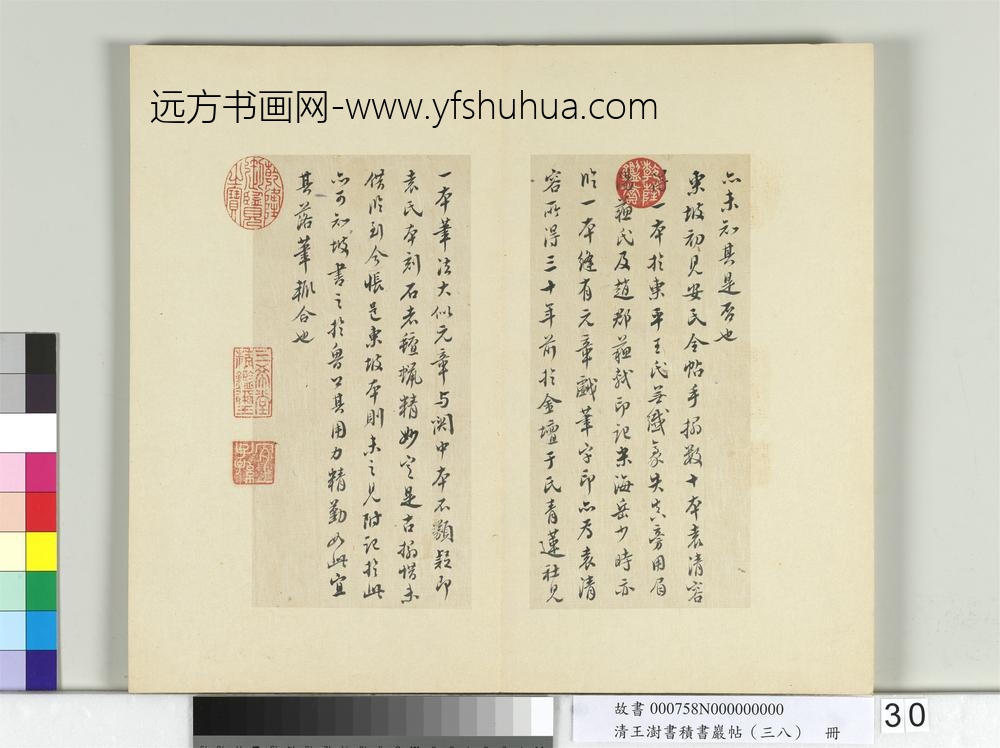 远方书画网-www.yfshuhua.com
亦未知其是否也
東坡初見安氏全帖手搨數十本袁清容
一本於東平王氏無纖豪失真旁用眉
蘇氏及趙郡蘇軾印記米海岳少時亦
臨一本縫有元章戲筆字印亦為袁清
容所得三十年前於金壇于氏青蓮社見
一本筆法大似元章与闕中本不類疑即
袁氏本刻石者氊蠟精妙定是古搨惜未
借臨到今悵是東坡本則未之見附記於此
亦可知坡書之於魯公其用力精勤如此宜
其落筆輒合也
乾隆御覽之寶
乾隆鑑賞
三希堂精鑑璽
宜子孫
故書 000758N000000000
清王澍書積書巖帖（三八） 冊
30